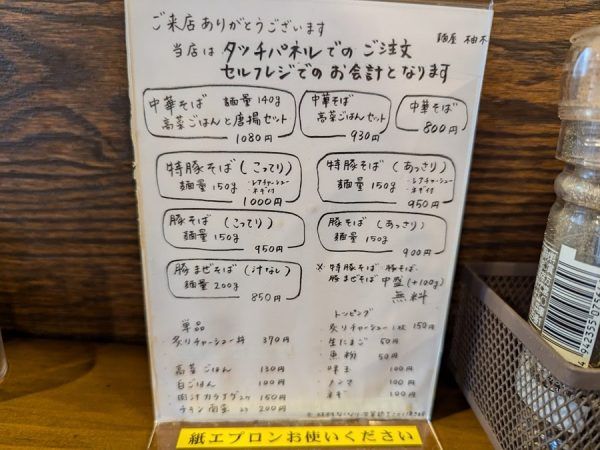 ご来店ありがとうございます
麺屋 柚木
当店は タッチパネルでの ご注文
セルフレジでの お会計となります
中華そば 麺量 140g
高菜ごはんと唐揚セット
1080円
中華そば
高菜ごはんセット
930円
中華そば
800円
特豚そば(こってり)
麺量 150g
・レアチャーシュー
・ネギ付
1000円
特豚そば(あっさり)
麺量 150g
・レアチャーシュー
・ネギ付
950円
豚そば(こってり)
麺量 150g
950円
豚そば(あっさり)
麺量 150g
900円
豚まぜそば(汁なし)
麺量 200g
850円
※ 特豚そば 豚そば
豚まぜそば 中盛(+100g)
無料
単品
炙りチャーシュー丼 370円
高菜ごはん 130円
白ごはん 100円
肉汁カラアゲ 2ケ 150円
チキン南蛮 2ケ 200円
トッピング
炙りチャーシュー 1枚 150円
生たまご 50円
魚粉 50円
味玉 100円
メンマ 100円
ネギ 100円
紙エプロンお使いください
4 942355 0755